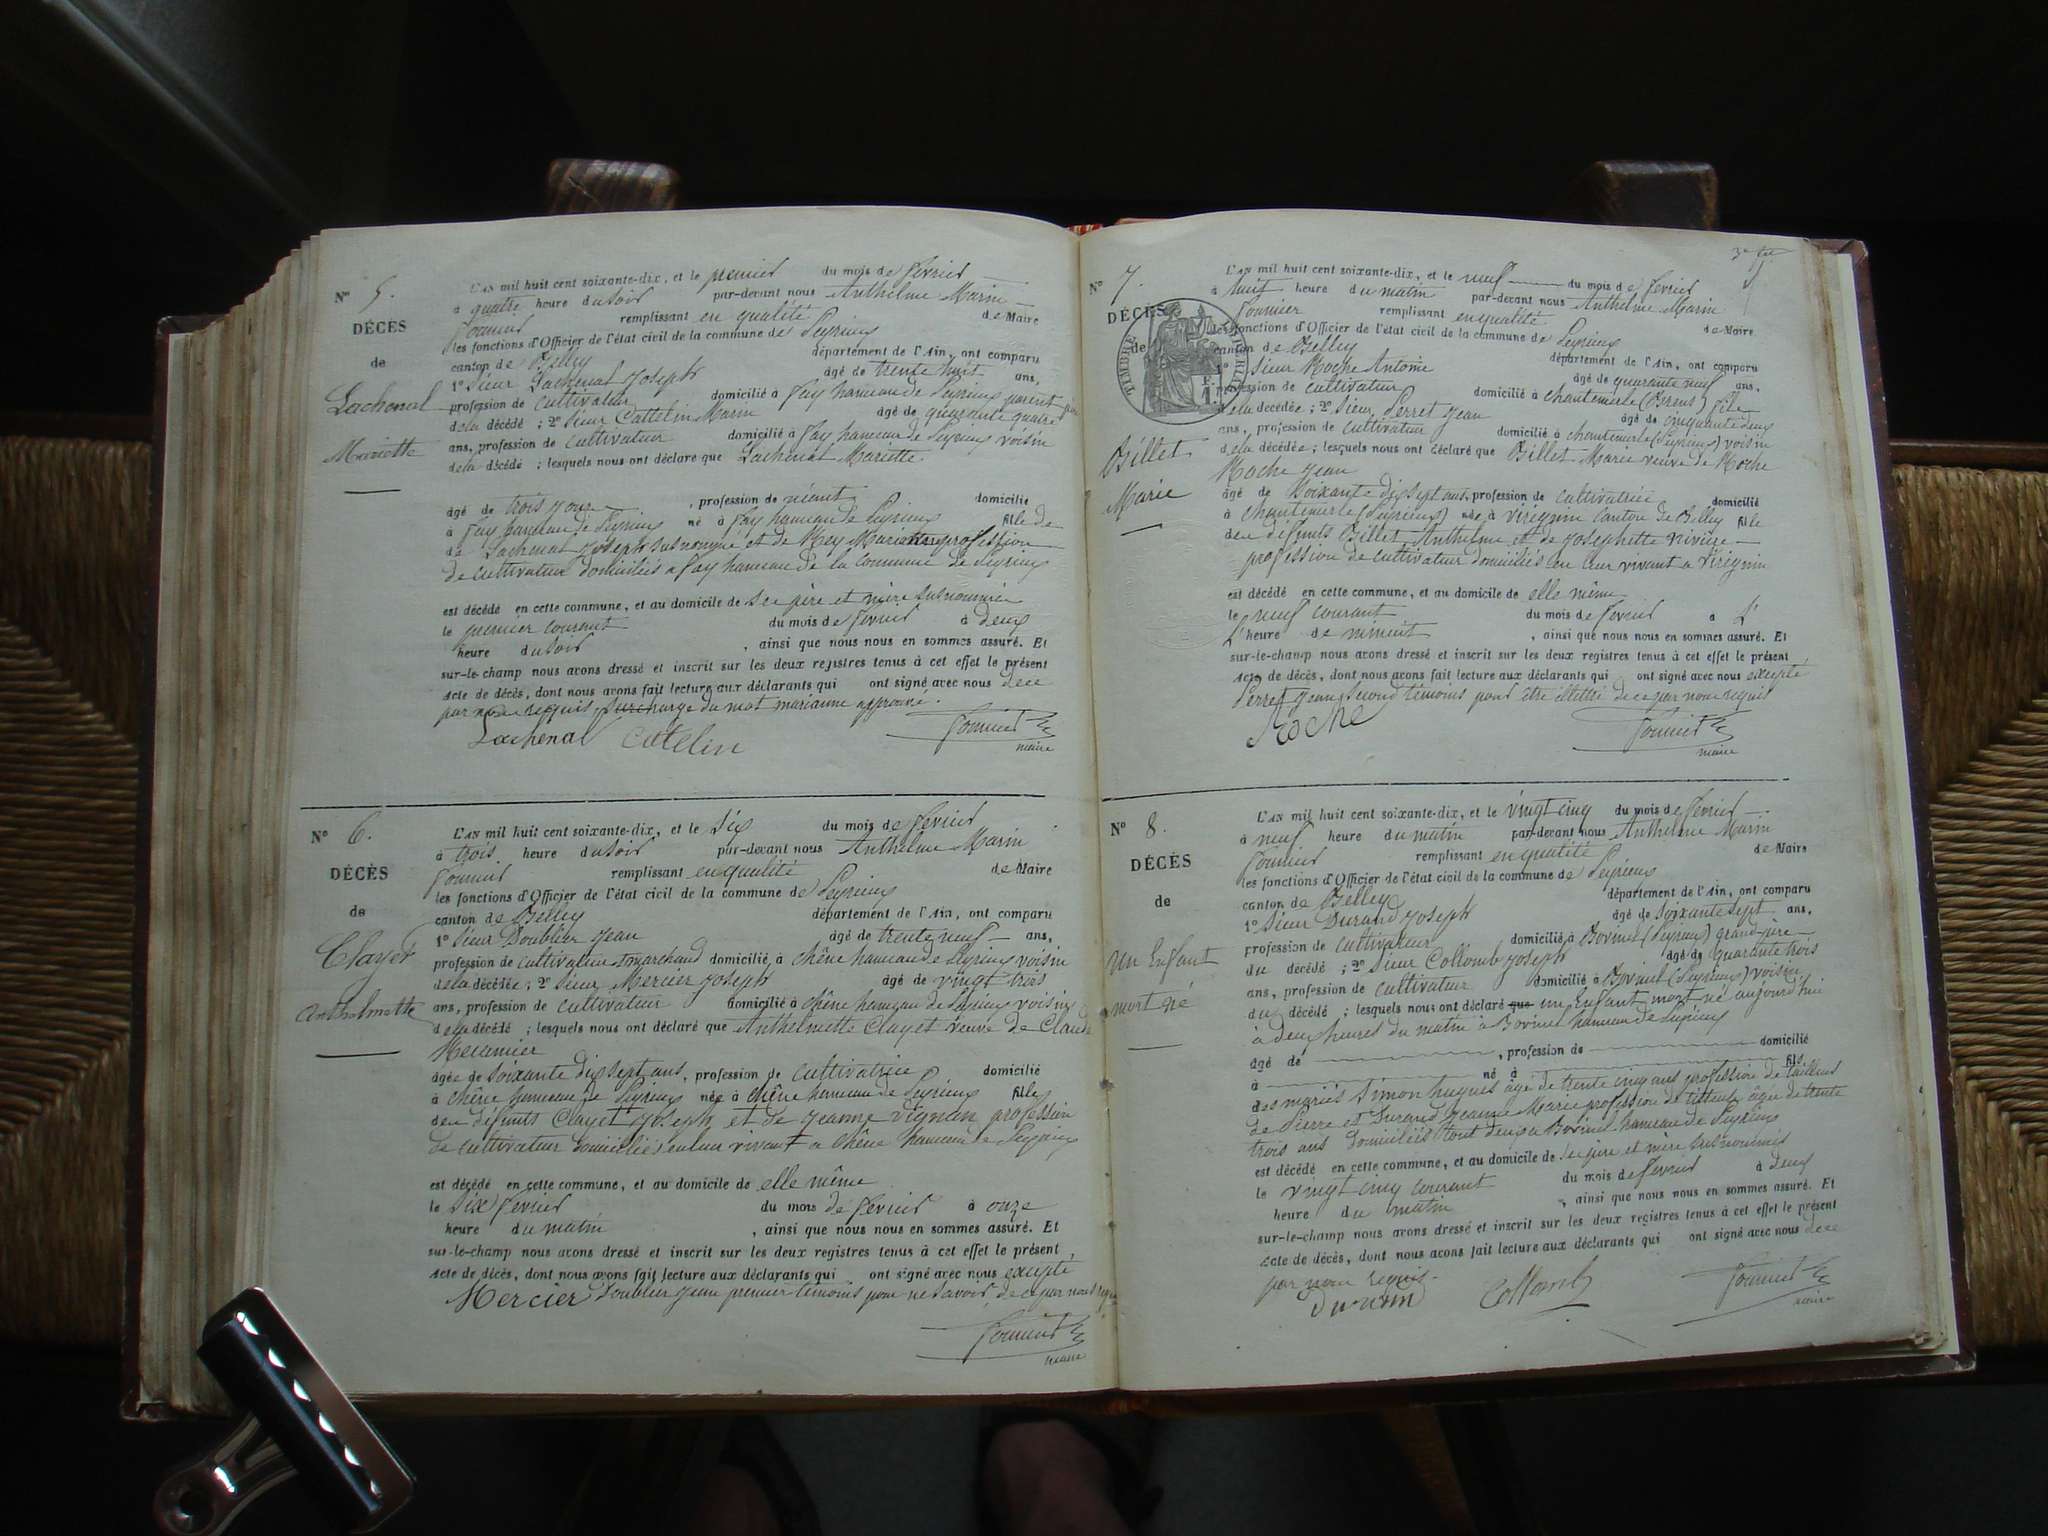 N° 5.
DÉCÈS
de
Lachenal
Mariette
L'AN mil huit cent soixante-dix, et le premier du mois de février
à quatre heure du soir par-devant nous Anthelme Marin
remplissant en qualité de Maire
les fonctions d'Officier de l'état civil de la commune de
canton de Belley département de l'Ain, ont comparu
1° Sieur Lachenal Joseph âgé de trente huit ans,
profession de cultivateur domicilié à Fay hameau de
de la décédé ; 2° Sieur Cattelin Marin âgé de quarante quatre
ans, profession de cultivateur domicilié à Fay hameau de voisin
de la décédé ; lesquels nous ont déclaré que Lachenal Mariette
âgé de trois jours , profession de néant domicilié
à Fay hameau de né à Fay hameau de fille de
de Lachenal Joseph susnommé et de Rey profession
de cultivateur domiciliés a Fay hameau de la commune de
est décédé en cette commune, et au domicile de ses père et mère susnommés
le premier courant du mois de février à deux
heure du soir , ainsi que nous nous en sommes assuré. Et
sur-le-champ nous avons dressé et inscrit sur les deux registres tenus à cet effet le présent
acte de décès, dont nous avons fait lecture aux déclarants qui ont signé avec nous de ce
par nous requis Surcharge du mot marianne approuvé.
Lachenal Catelin
maire
N° 6.
DÉCÈS
de
Clayet
Anthelmette
L'AN mil huit cent soixante-dix, et le six du mois de février
à trois heure du soir par-devant nous Anthelme Marin
remplissant en qualité de Maire
les fonctions d'Officier de l'état civil de la commune de
canton de Belley département de l'Ain, ont comparu
1° Sieur Doublier Jean âgé de trente neuf ans,
profession de cultivateur marchand domicilié à Chêne hameau de voisin
de la décédée ; 2° Sieur Mercier Joseph âgé de vingt trois
ans, profession de cultivateur domicilié à Chêne hameau de voisin
de la décédé ; lesquels nous ont déclaré que Anthelmette Clayet veuve de Claude
Récamier
âgée de soixante dix sept ans, profession de cultivatrice domicilié
à Chêne hameau de née à Chêne hameau de fille
de défunts Clayet Joseph et de Jeanne profession
de cultivateur domiciliés en leur vivant a Chêne hameau de
est décédé en cette commune, et au domicile de elle même
le six février du mois de février à onze
heure du matin , ainsi que nous nous en sommes assuré. Et
sur-le-champ nous avons dressé et inscrit sur les deux registres tenus à cet effet le présent
acte de décès, dont nous avons fait lecture aux déclarants qui ont signé avec nous excepté
Mercier Doublier Jean premier témoins pour ne savoir de ce par nous requis
maire
N° 7.
DÉCÈS
de
TIMBRE
Billet
Marie
L'AN mil huit cent soixante-dix, et le neuf du mois de février
à huit heure du matin par-devant nous Anthelme Marin
remplissant en qualité de Maire
les fonctions d'Officier de l'état civil de la commune de
canton de Belley département de l'Ain, ont comparu
1° Sieur Roche Antoine âgé de quarante neuf ans,
profession de cultivateur domicilié à Chantemerle (Brens) fils
de la décédée ; 2° Sieur Perret Jean âgé de cinquante deux
ans, profession de cultivateur domicilié à Chantemerle voisin
de la décédée ; lesquels nous ont déclaré que Billet Marie veuve de Roche
Roche Jean
âgé de soixante dix sept ans, profession de cultivatrice domicilié
à Chantemerle née à Virignin canton de Belley fille
de défunts Billet Anthelme et de Josephette Rivière
profession de cultivateur domiciliés en leur vivant a Virignin
est décédé en cette commune, et au domicile de elle même
le neuf courant du mois de février à L'
L'heure de minuit , ainsi que nous nous en sommes assuré. Et
sur-le-champ nous avons dressé et inscrit sur les deux registres tenus à cet effet le présent
acte de décès, dont nous avons fait lecture aux déclarants qui ont signé avec nous excepté
Perret Jean second témoins pour être illétré de ce par nous requis
Roche
maire
N° 8.
DÉCÈS
de
un Enfant
mort né
L'AN mil huit cent soixante-dix, et le vingt cinq du mois de février
à neuf heure du matin par-devant nous Anthelme Marin
remplissant en qualité de Maire
les fonctions d'Officier de l'état civil de la commune de
canton de Belley département de l'Ain, ont comparu
1° Sieur Durand Joseph âgé de soixante sept ans,
profession de cultivateur domicilié à Bovinel grand père
du décédé ; 2° Sieur Collomb Joseph âgé de quarante trois
ans, profession de cultivateur domicilié à Bovinel voisin
du décédé ; lesquels nous ont déclaré que un Enfant mort né aujourd'hui
à deux heures du matin à Bovinel hameau de
âgé de , profession de domicilié
à né à fils
des mariés Simon hugues âgé de trente cinq ans profession de tailleur
de Pierre et Durand Jeanne Marie profession de âgée de trente
trois ans domiciliés tout deux a Bovinel hameau de
est décédé en cette commune, et au domicile de ses père et mère susnommés
le vingt cinq courant du mois de février à deux
heure du matin , ainsi que nous nous en sommes assuré. Et
sur-le-champ nous avons dressé et inscrit sur les deux registres tenus à cet effet le présent
acte de décès, dont nous avons fait lecture aux déclarants qui ont signé avec nous de ce
par nous requis.
Durand Collomb
maire